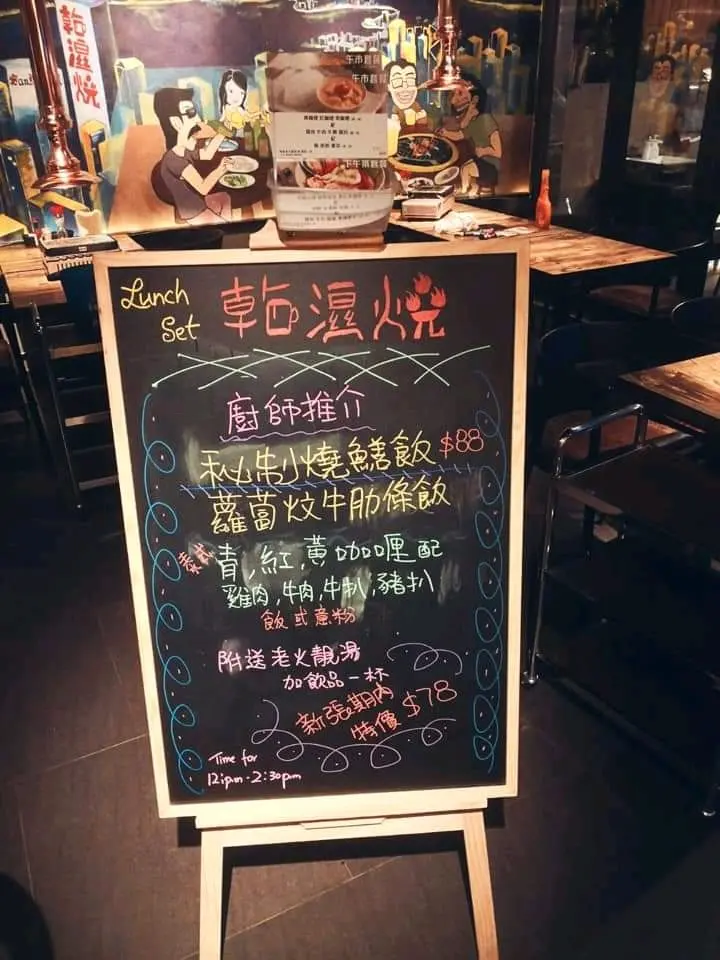 乾濕燒
午市套餐
午市套餐
下午茶套餐
Lunch
Set
乾濕燒
廚師推介
秘制燒鱔飯 $88
蘿蔔炆牛肋條飯
泰式 青,紅,黃咖喱配
雞肉,牛肉,牛扒,豬扒
飯或意粉
附送老火靚湯
加飲品一杯
新張期內
特價 $78
Time for
12:pm-2:30pm